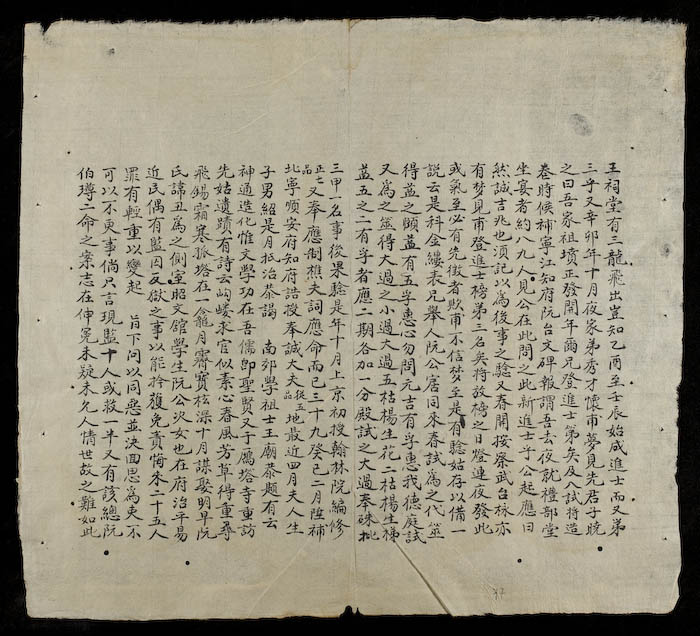 王祠堂有三龍飛出豈知乙酉至壬辰始成進士而又弟
三乎又辛卯年十月夜家弟秀才懷甫夢見先君子晥
之曰吾家祖墳正發開年爾兄登進士第矣及入試將造
卷時候補寧江知府阮台文碑報謂吾去夜就禮部堂
坐宴者約八九人見公在此問之此新進士乎公起應曰
然誠吉兆也須記以為後事之驗又春開按察武台秋亦
有夢見甫登進士榜第三名矣將放榜之日燈連夜發此
或氣至必有先徵者歟甫不信夢至是有驗姑存以備一
說云是科金縷表兄舉人阮公居同來春試為之代筮
得益之頤益有五孚惠心勿問元吉有孚惠我德庭試
又為之筮得大過之小過大過五枯楊生花二枯楊生梯
益五之二有孚者應二期各加一分殿試之大過奉硃批
三甲一名事後果驗是年十月上京初授翰林院編修
正七品又奉應制樵夫詞應命而已三十九癸巳二月陞補
北寧順安府知府誥授奉誠大夫從五品地最近四月夫人生
子男紹是月抵治恭謁 南郊學祖士王廟恭題有云
神通造化惟文學功在吾儒即聖賢又于鴈塔寺重訪
先姑遺蹟有詩云岣嶁求官似素心春風芳草得重尋
飛錫霜寒孤塔在一龕月霽寶松深十月謀娶明早阮
氏諱丑為之側室昭文館學生阮公次女也在府治平易
近民偶有監因反獄之事以能拎獲免責悔未二十五人
罪有輕重以變起 旨下問以同惡並決回思為吏不
可以不更事倘只言現監十人或救一半又有該總阮
伯瑼二命之案志在伸冤未疑未允人情世故之難如此